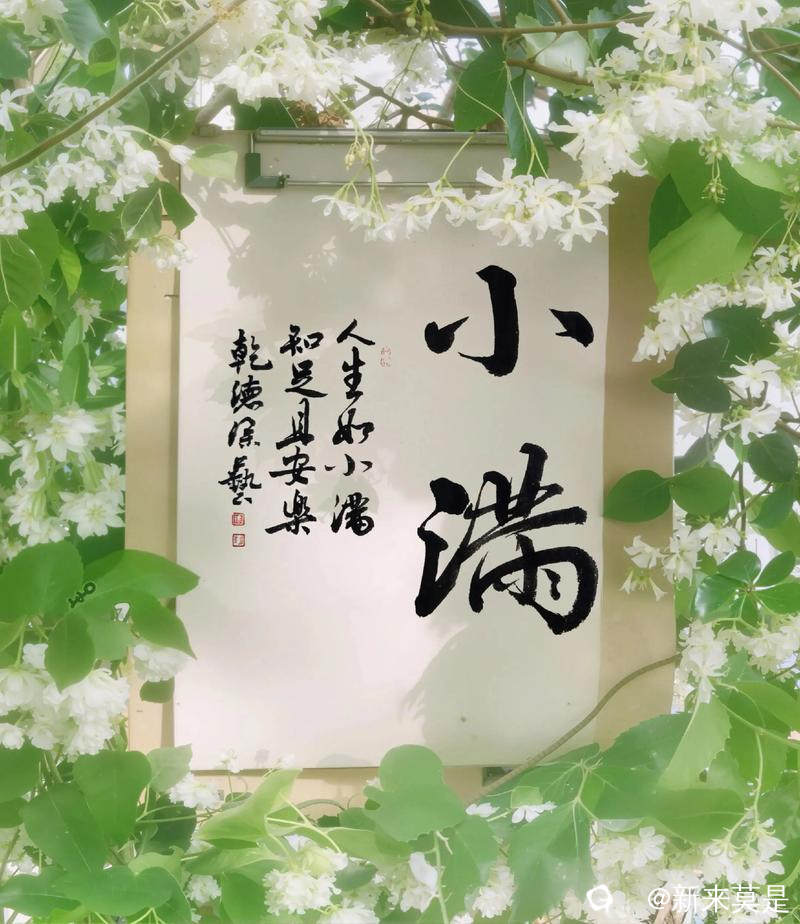 小满
人生如小满
知足且安樂
乾德深藝
@新来莫是